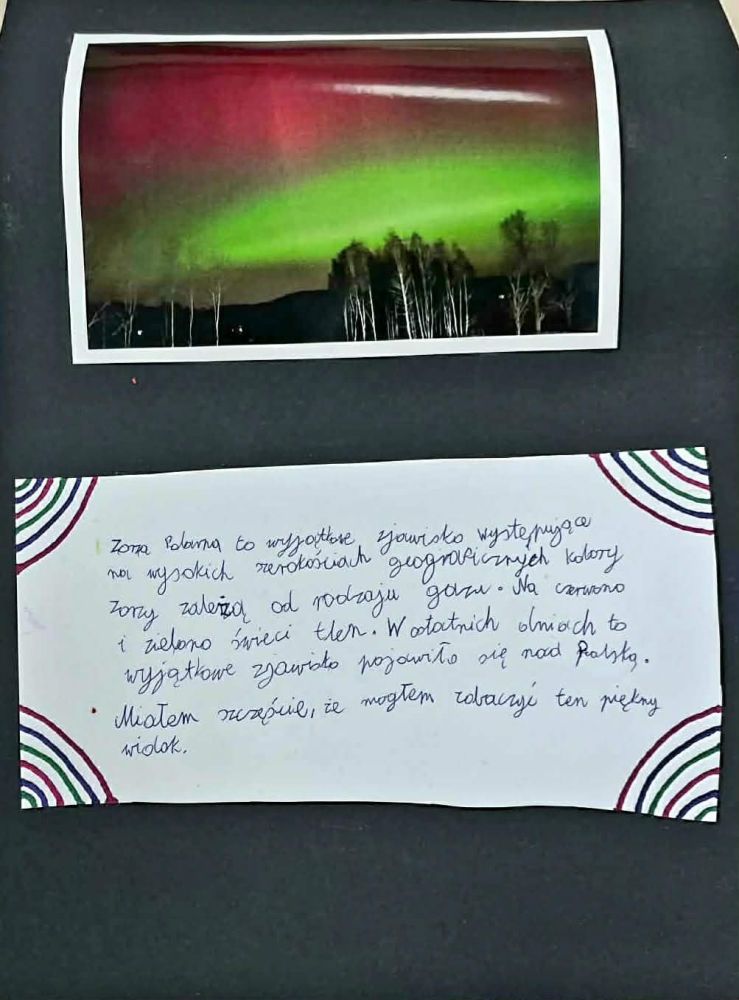 Zorza Polarna to wyjątkowe zjawisko występujące
na wysokich szerokościach geograficznych kolory
zorzy zależą od rodzaju gazu. Na czerwono
i zielono świeci tlen. W ostatnich dniach to
wyjątkowe zjawisko pojawiło się nad Polską.
Miałem szczęście, że mogłem zobaczyć ten piękny
widok.